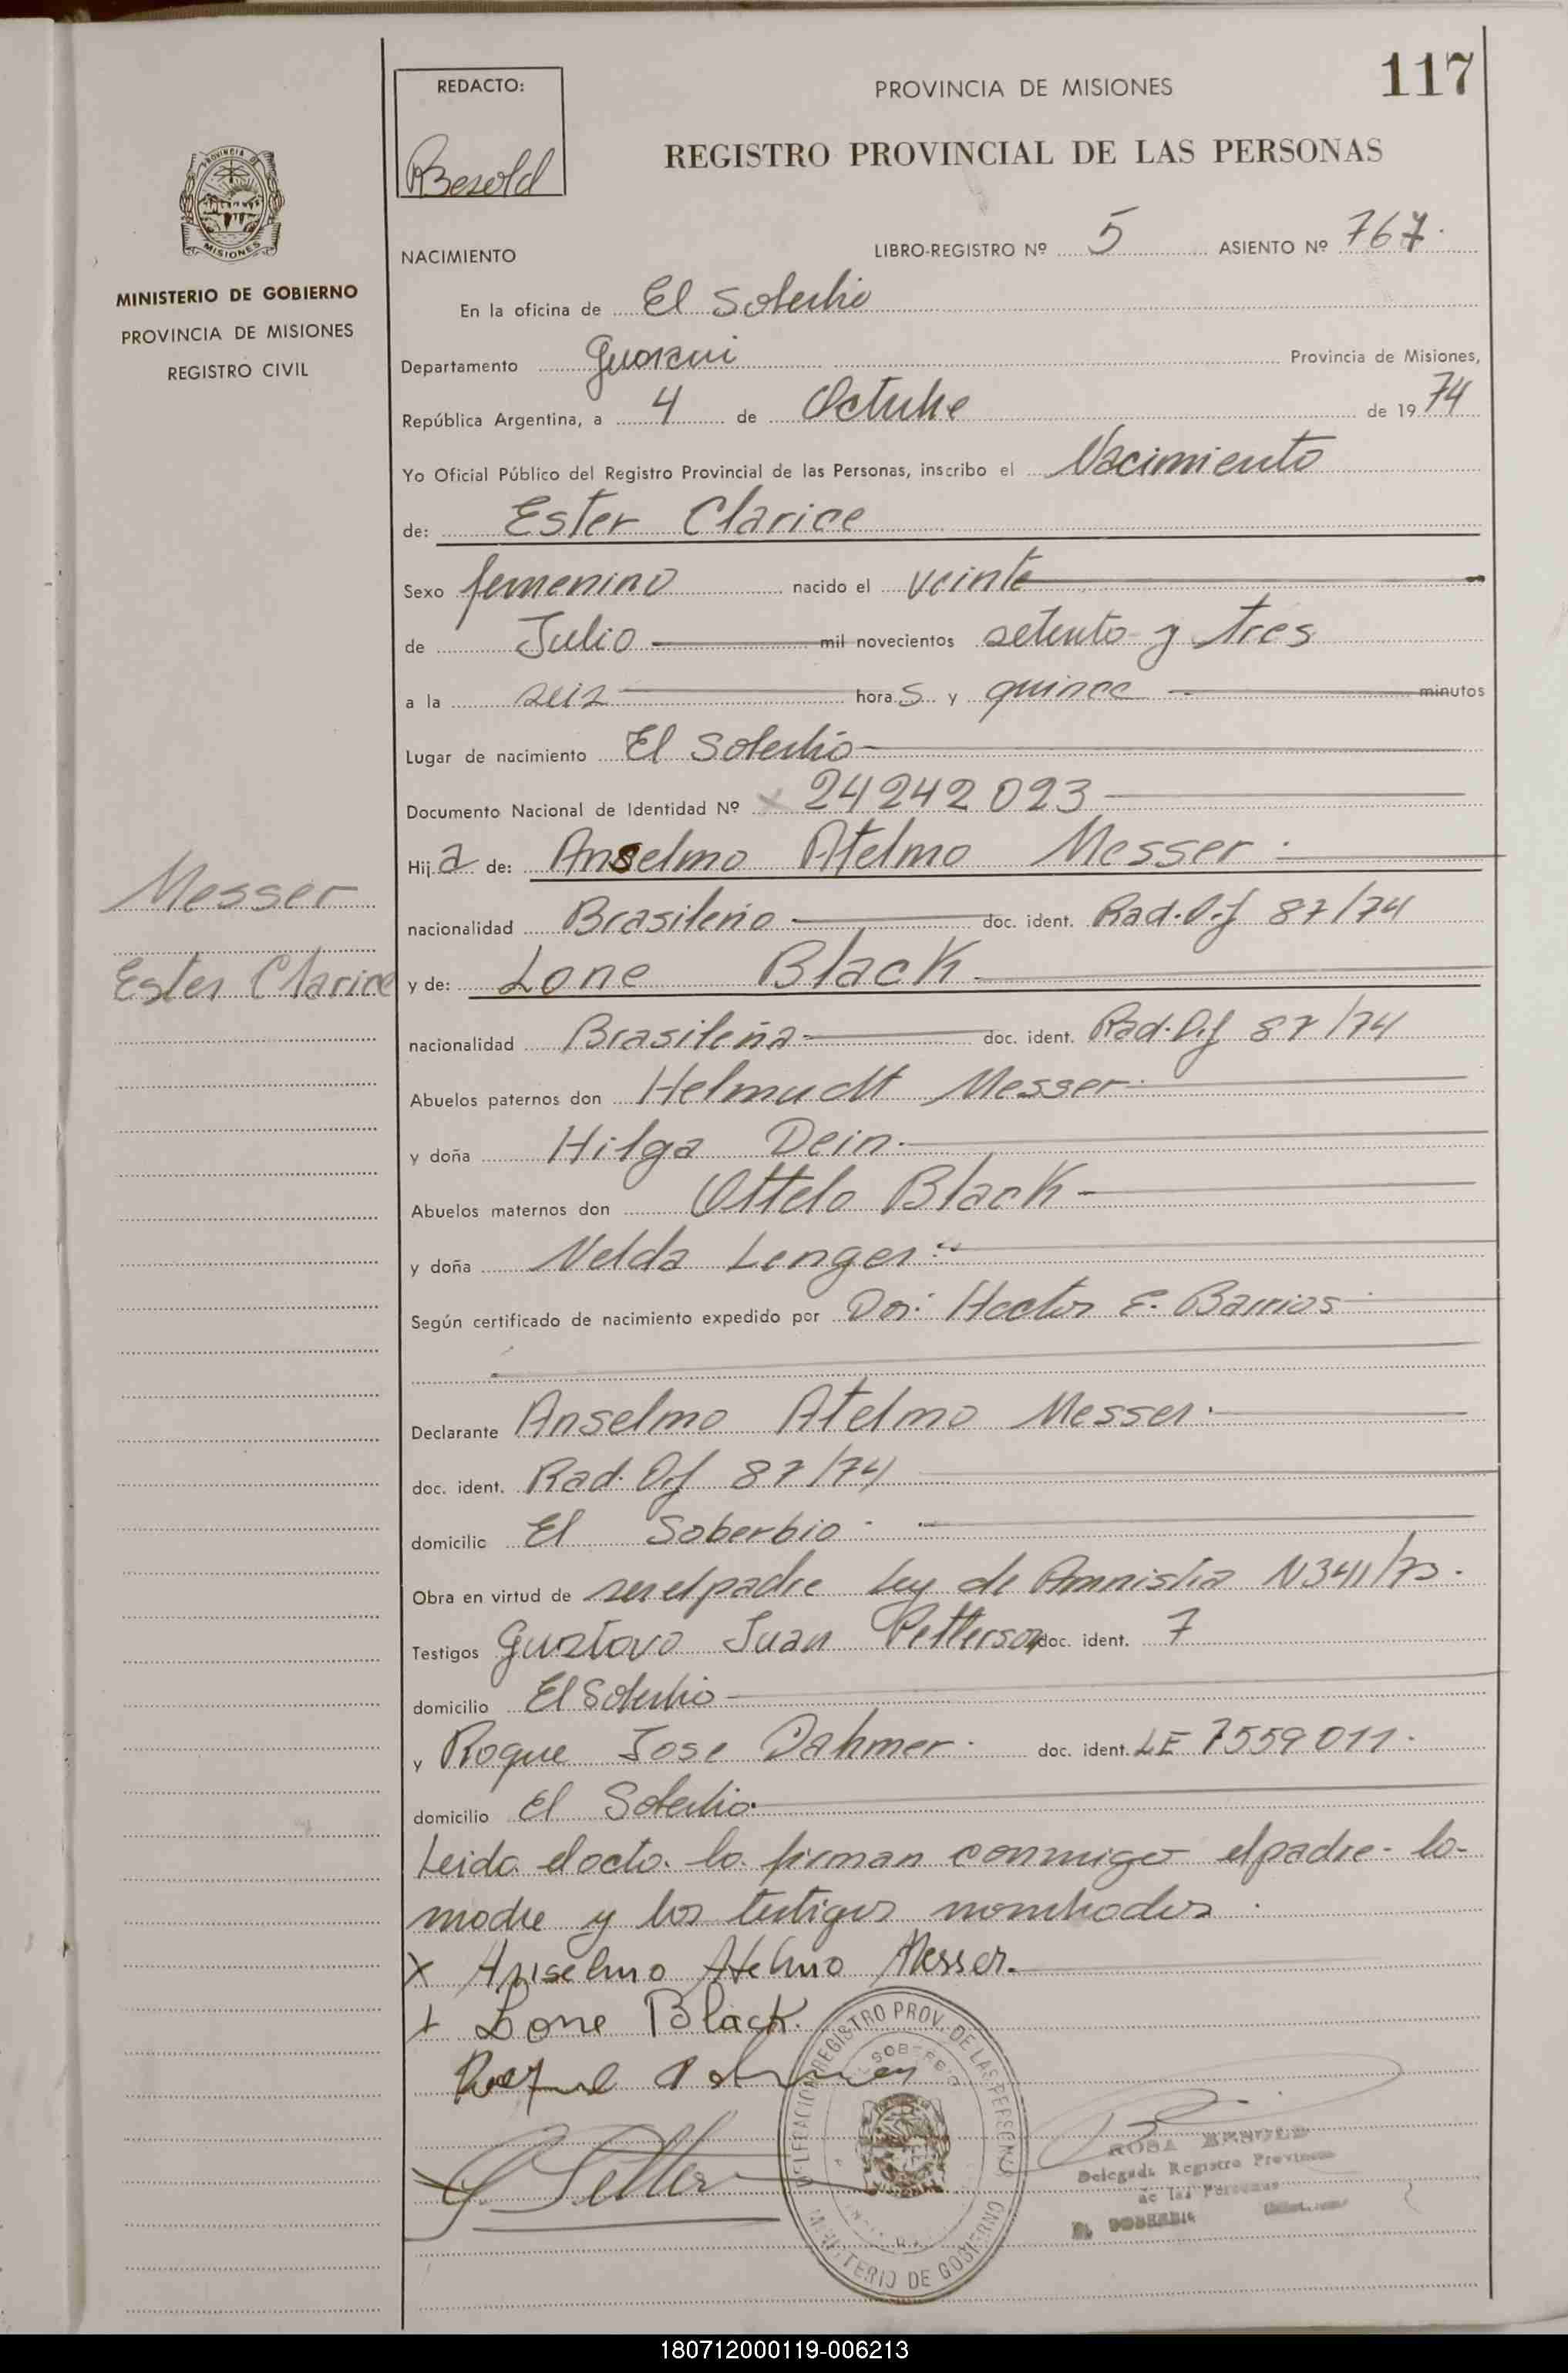 117
REDACTO:
Besold
PROVINCIA DE MISIONES
REGISTRO PROVINCIAL DE LAS PERSONAS
PROVINCIA DE
MISIONES
MINISTERIO DE GOBIERNO
PROVINCIA DE MISIONES
REGISTRO CIVIL
NACIMIENTO LIBRO-REGISTRO Nº 5 ASIENTO Nº 767.
En la oficina de El Soberbio
Departamento Guarani Provincia de Misiones,
República Argentina, a 4 de Octubre de 1974
Yo Oficial Público del Registro Provincial de las Personas, inscribo el Nacimiento
de: Ester Clarice
Sexo femenino nacido el veinte
de Julio mil novecientos setenta y tres
a la seis horas y quince minutos
Lugar de nacimiento El Soberbio
Documento Nacional de Identidad Nº 24242023
Hija de: Anselmo Atelmo Messer.
Messer
nacionalidad Brasileño doc. ident. Rad. Def 87/74
Ester Clarice
y de: Lone Black
nacionalidad Brasileña doc. ident. Rad. Def 87/74
Abuelos paternos don Helmudt Messer
y doña Hilga Dein.
Abuelos maternos don Ottelo Black
y doña Nelda Lenger
Según certificado de nacimiento expedido por Dr. Hector E. Barrios
Declarante Anselmo Atelmo Messer.
doc. ident. Rad. Def 87/74
domicilio El Soberbio
Obra en virtud de ser el padre Ley de Amnistia N 3411/73.
Testigos Gustavo Juan Petterson doc. ident. 7
domicilio El Soberbio
y Roque Jose Dahmer. doc. ident. LE 7559011.
domicilio El Soberbio
Leida el acta la firman conmigo el padre la
madre y los testigos nombrados.
X Anselmo Atelmo Messer.
+ Lone Black.
DELEGACION REGISTRO PROV. DE LAS PERSONAS
SOBERBIO
MINISTERIO DE GOBIERNO
ROSA BESOLD
Delegada Registro Provincial
de las Personas
EL SOBERBIO
180712000119-006213